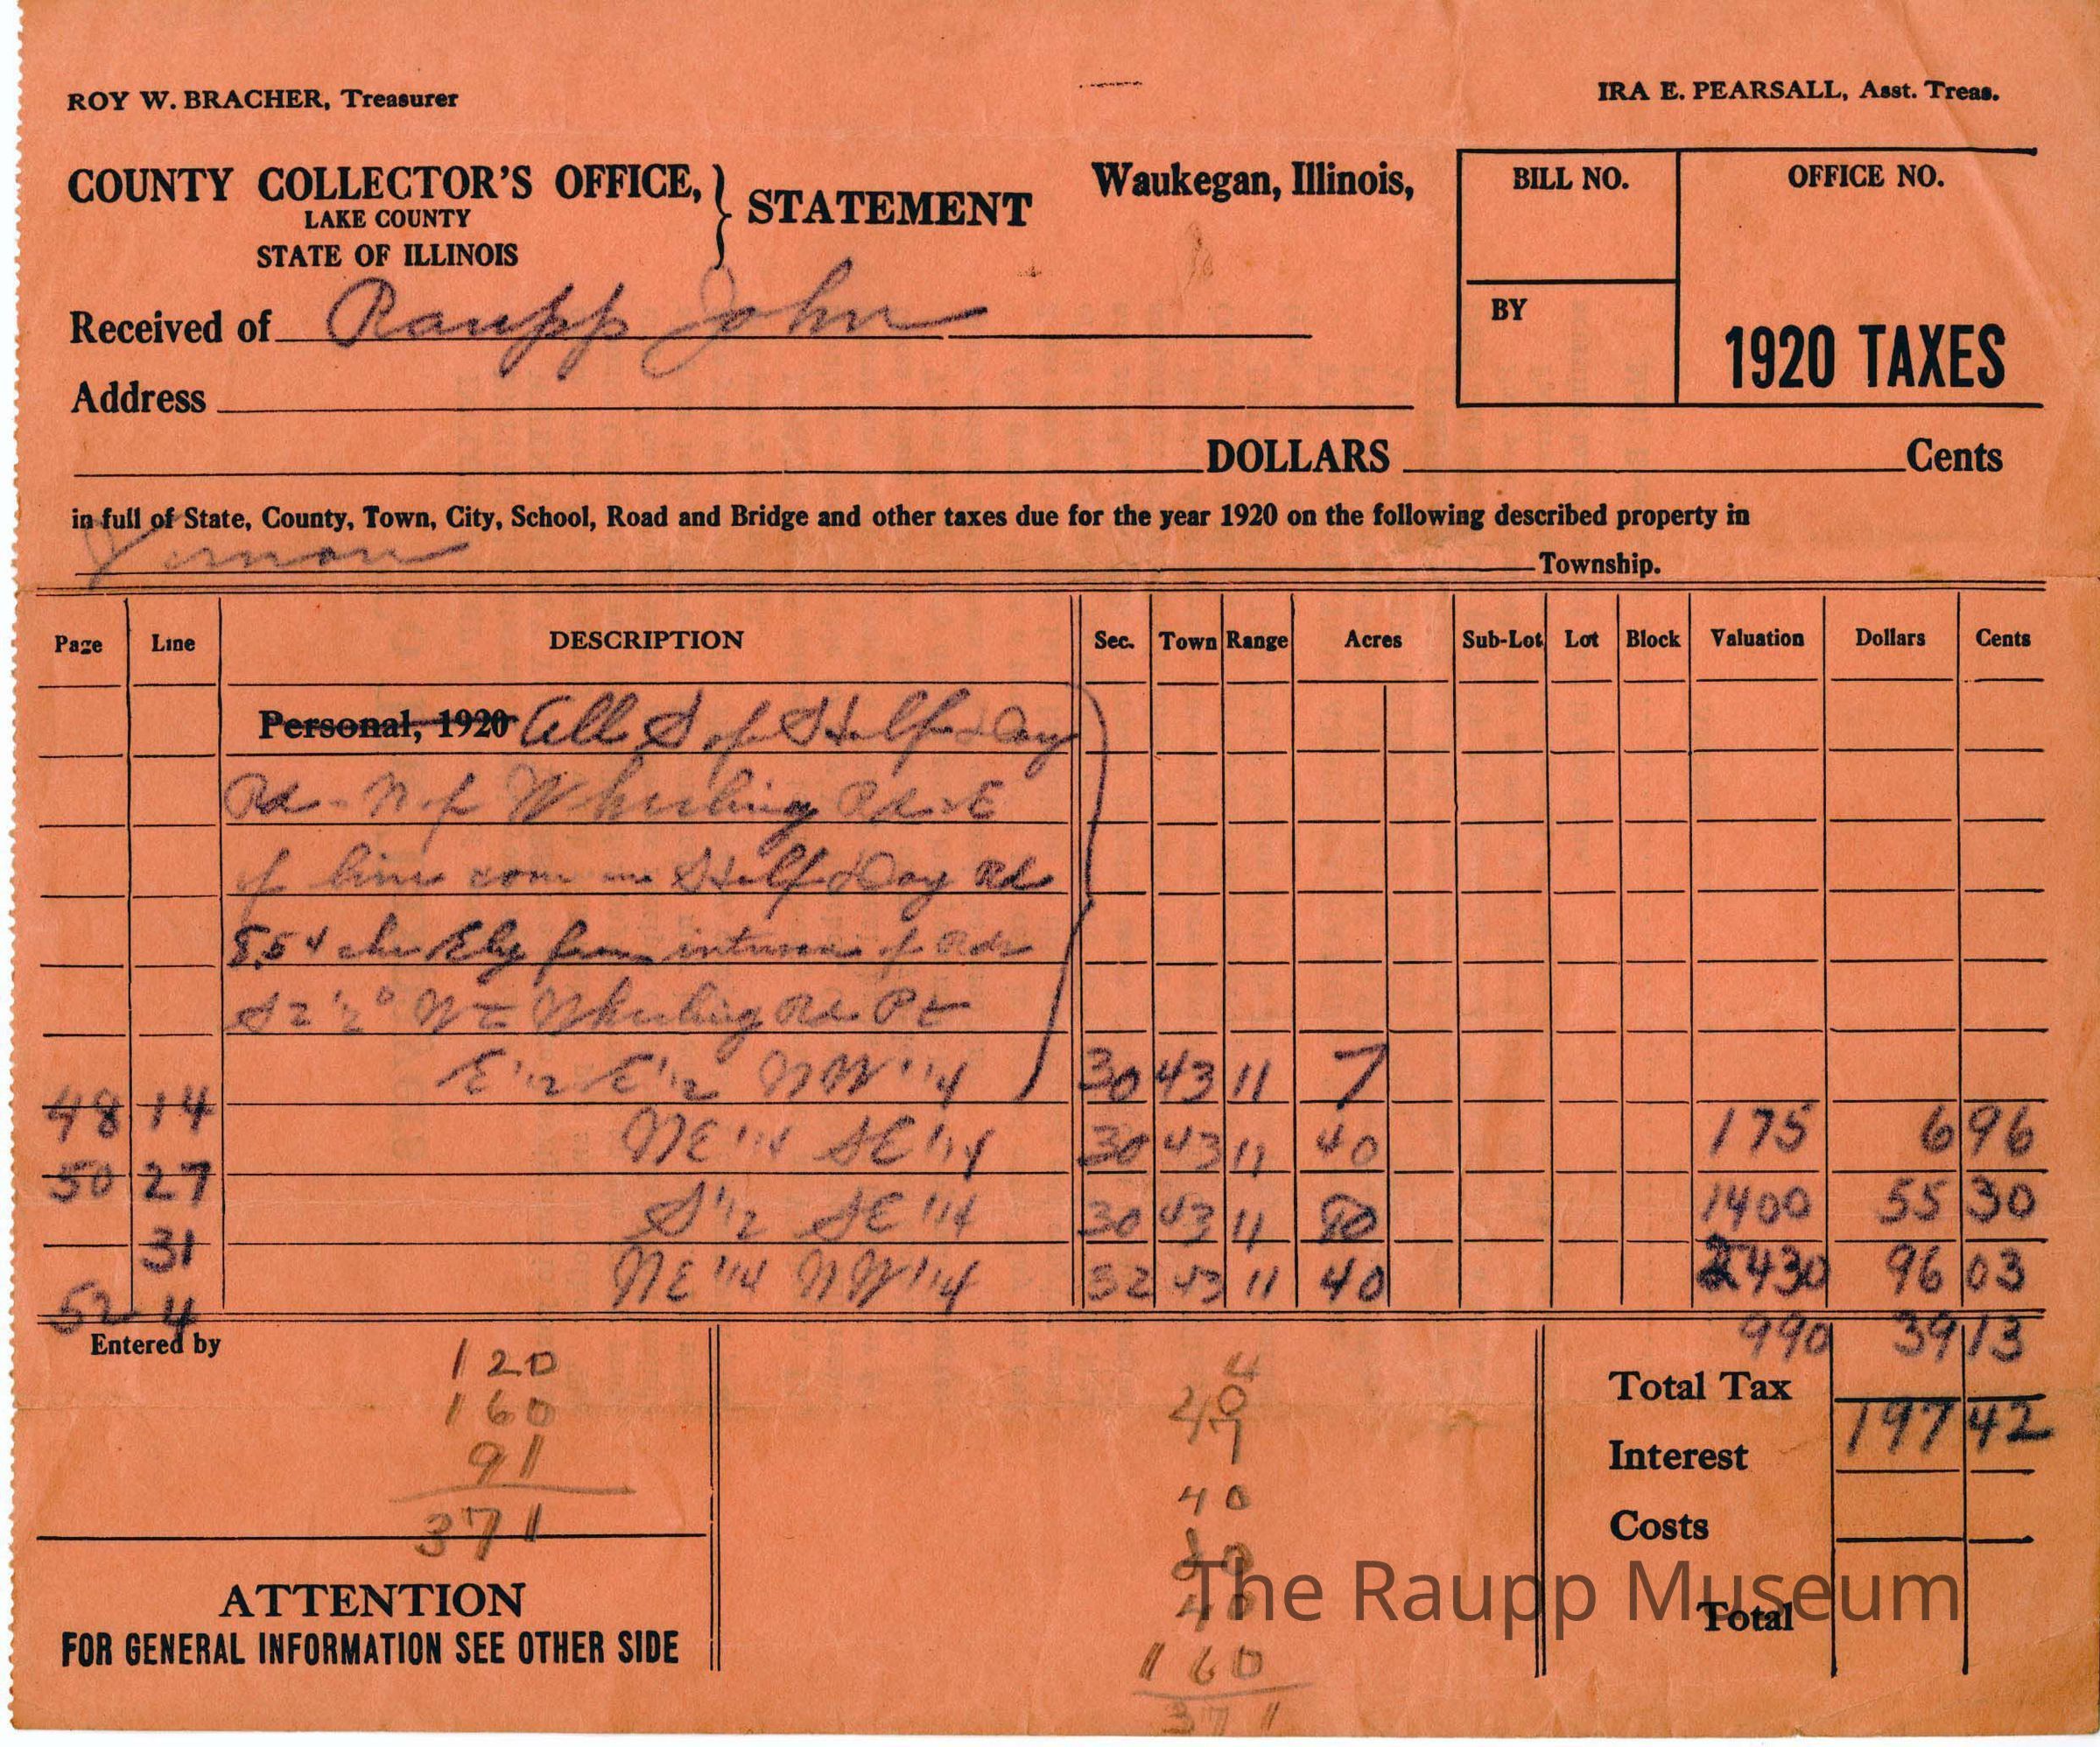 ROY W. BRACHER, Treasurer
IRA E. PEARSALL, Asst. Treas.
COUNTY COLLECTOR'S OFFICE,
LAKE COUNTY
STATE OF ILLINOIS
STATEMENT
Waukegan, Illinois,
BILL NO.
OFFICE NO.
BY
1920 TAXES
Received of Raupp John
Address
DOLLARS Cents
in full of State, County, Town, City, School, Road and Bridge and other taxes due for the year 1920 on the following described property in
Vernon Township.
Page Line DESCRIPTION Sec. Town Range Acres Sub-Lot Lot Block Valuation Dollars Cents
Personal, 1920 All S of Half Day
Rd - N of Wheeling Rd & E
of line com Half Day Rd
8.54 chs Ely from of Rds
S 2 1/2° W to Wheeling Rd Pt
E 1/2 E 1/2 NW 1/4 30 43 11 7
48 14 NE 1/4 SE 1/4 30 43 11 40 175 6 96
50 27 S 1/2 SE 1/4 30 43 11 80 1400 55 30
31 NE 1/4 NW 1/4 32 43 11 40 2430 96 03
52 4 990 39 13
Entered by
120
160
91
371
4
20
47
40
80
40
160
371
Total Tax 197 42
Interest
Costs
Total
ATTENTION
FOR GENERAL INFORMATION SEE OTHER SIDE
The Raupp Museum